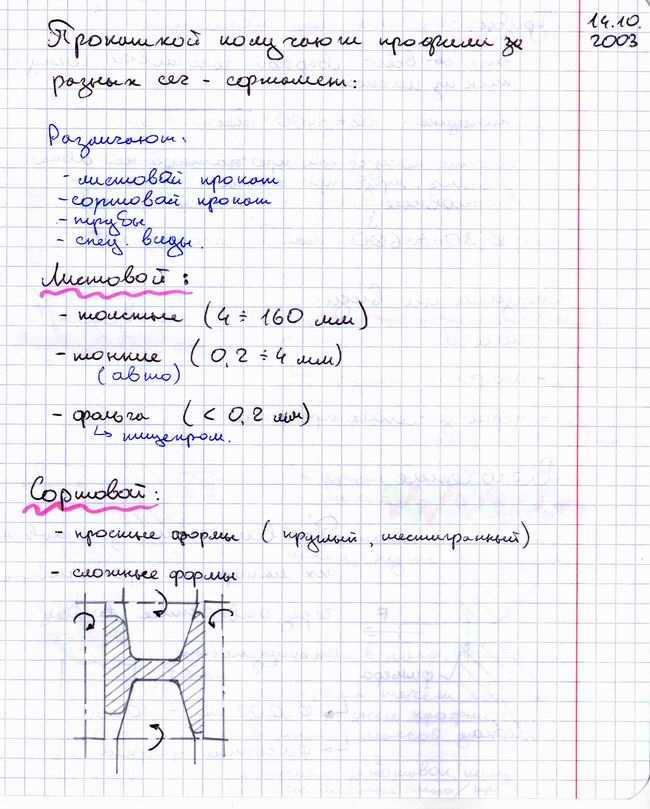 14.10.
2003
Прокаткой получают профили за
разных сег - сортамент:
Различают:
- листовой прокат
- сортовой прокат
- трубы
- спец. виды.
Листовой:
- толстые (4 ÷ 160 мм)
- тонкие (0,2 ÷ 4 мм)
(авто)
- фольга (< 0,2 мм)
↳ пищепром.
Сортовой:
- простые формы (круглый, шестигранный)
- сложные формы